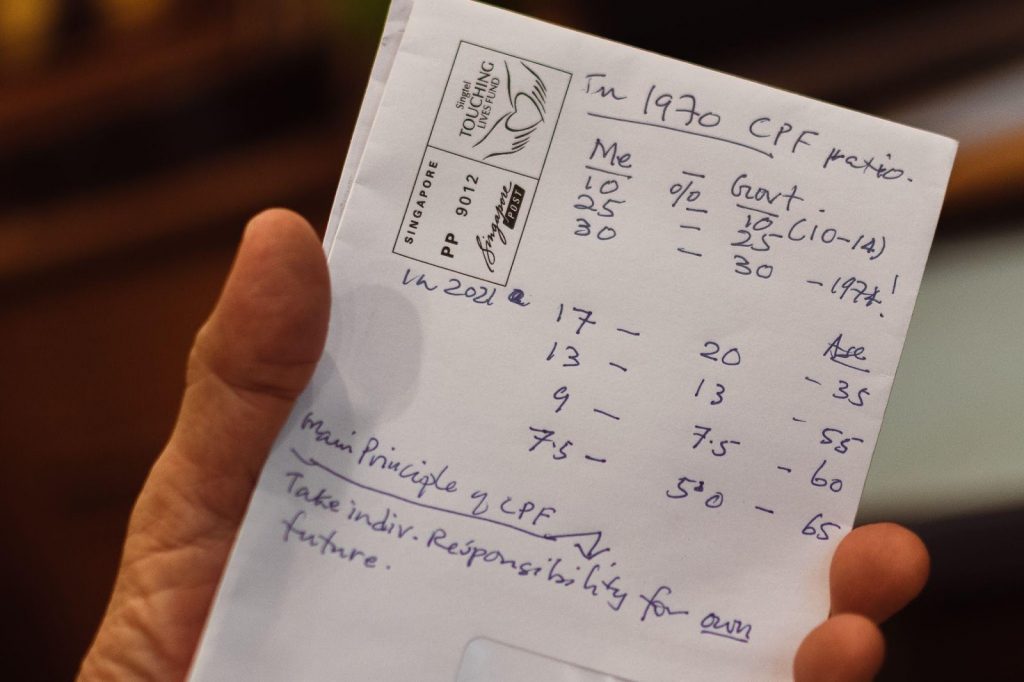 Singtel
TOUCHING
LIVES FUND
SINGAPORE
PP 9012
Singapore
POST
In 1970 CPF ratio.
Me – Govt.
10 % 10 (10-14)
25 – 25
30 – 30 – 197
in 2021
Age
17 – 20 – 35
13 – 13 – 55
9 – 7.5 – 60
7.5 – 5.0 – 65
Main Principle of CPF
Take indiv. Responsibility for own
future.